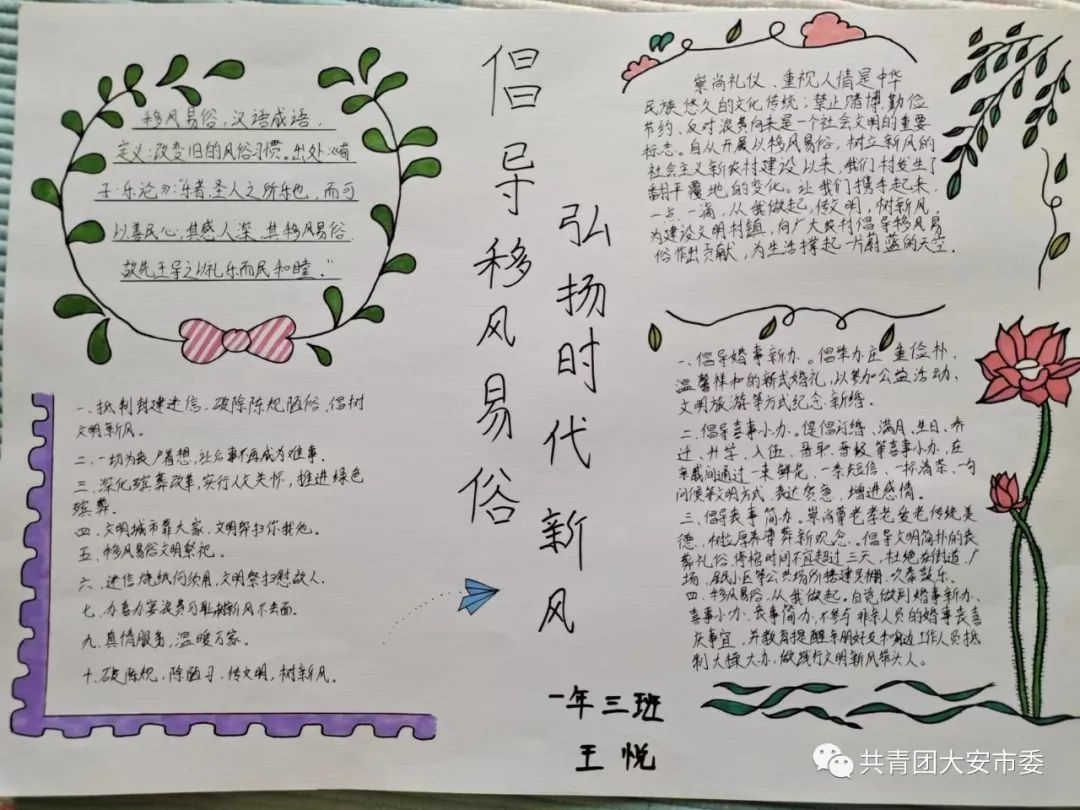 倡导移风易俗
弘扬时代新风
移风易俗，汉语成语，
定义：改变旧的风俗习惯。出处《荀
子·乐论》：“乐者，圣人之所乐也，而可
以善民心，其感人深，其移风易俗，
故先王导之以礼乐而民和睦。”
崇尚礼仪、重视人情是中华
民族悠久的文化传统；禁止赌博、勤俭
节约、反对浪费向来是一个社会文明的重要
标志。自从开展以移风易俗，树立新风的
社会主义新农村建设以来，我们村发生了
翻天覆地的变化。让我们携手起来，
一点一滴，从我做起，传文明，树新风，
为建设文明村镇，向广大农村倡导移风易
俗作出贡献，为生活撑起一片蔚蓝的天空。
一、抵制封建迷信，破除陈规陋俗，倡树
文明新风。
二、一切为丧户着想，让后事不再成为难事。
三、深化殡葬改革，实行人文关怀，推进绿色
殡葬。
四、文明城市靠大家，文明祭扫你我他。
五、移风易俗文明祭祀。
六、迷信烧纸何须用，文明祭扫慰故人。
七、办喜办宴浪费可耻，树新风不丢面。
九、真情服务，温暖万家。
十、破陈规，除陋习，传文明，树新风。
一、倡导婚事新办。倡举办庄重俭朴、
温馨祥和的新式婚礼，以参加公益活动、
文明旅游等方式纪念新婚。
二、倡导喜事小办。提倡订婚、满月、生日、乔
迁、升学、入伍、晋职、晋级等喜事小办，在
亲戚间通过一束鲜花、一条短信、一杯清茶、一句
问侯等文明方式，表达贺意，增进感情。
三、倡导丧事简办。崇尚尊老孝老爱老传统美
德，树立厚养薄葬新观念。倡导文明简朴的丧
葬礼俗，停棺时间不宜超过三天，杜绝在街道、广
场、居民小区等公共场所搭建灵棚、吹奏鼓乐。
四、移风易俗，从我做起。自觉做到婚事新办、
喜事小办、丧事简办，不参与非亲人员的婚事丧喜
庆事宜，并教育提醒亲朋好友和身边工作人员抵
制大操大办，做践行文明新风带头人。
一年三班
王悦
共青团大安市委